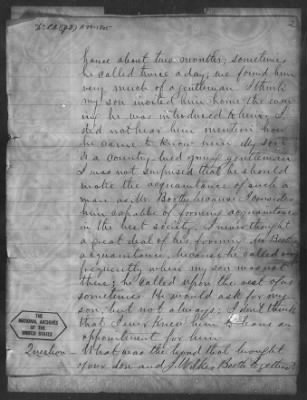 2
house about two months; sometimes
he called twice a day; we found him
very much of a gentleman. I think
my son invited him home the evening
he was introduced to him. I
did not hear him mention how
he came to know him. My son
is a country bred young gentleman
I was not surprised that he should
make the acquaintance of such a
man as Mr. Booth, because I consider
him capable of forming acquaintances
in the best society. I never thought
a great deal of his forming Mr Booth's
acquaintance, because he called very
frequently when my son was not
there; he called upon the rest of us
sometimes. He would ask for my
son, but not always; I don't think
that I ever knew him to leave an
appointment for him.
Question What was the bond that brought
your son and J Wilkes Booth together
THE
NATIONAL ARCHIVES
OF THE
UNITED STATES